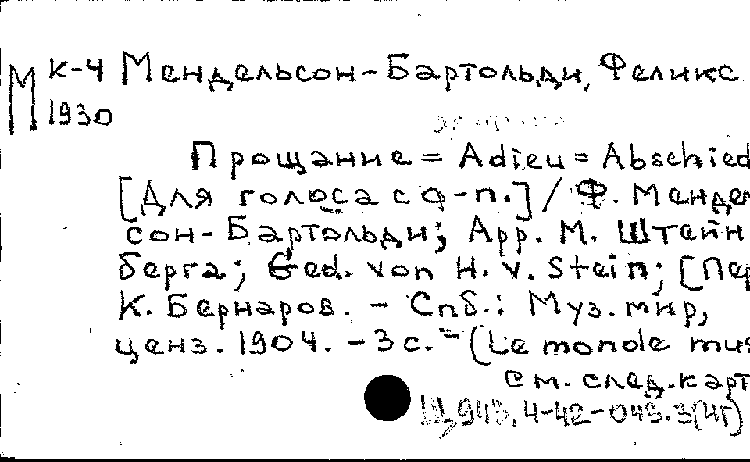 М к-4 Мендельсон-Бартольди, Феликс
1930
Прощание = Adieu = Abschied
[Для голоса с ф-п.] / Ф. Мендел
сон-Бартольди; Арр. М. Штейн
берга; Ged. von H. v. Stein; [Пер
К. Бернаров. - Спб.: Муз. мир,
ценз. 1904. - 3 с. - (Le monde mus
см. след. карт
Щ943.4-42-043.3(4Г)